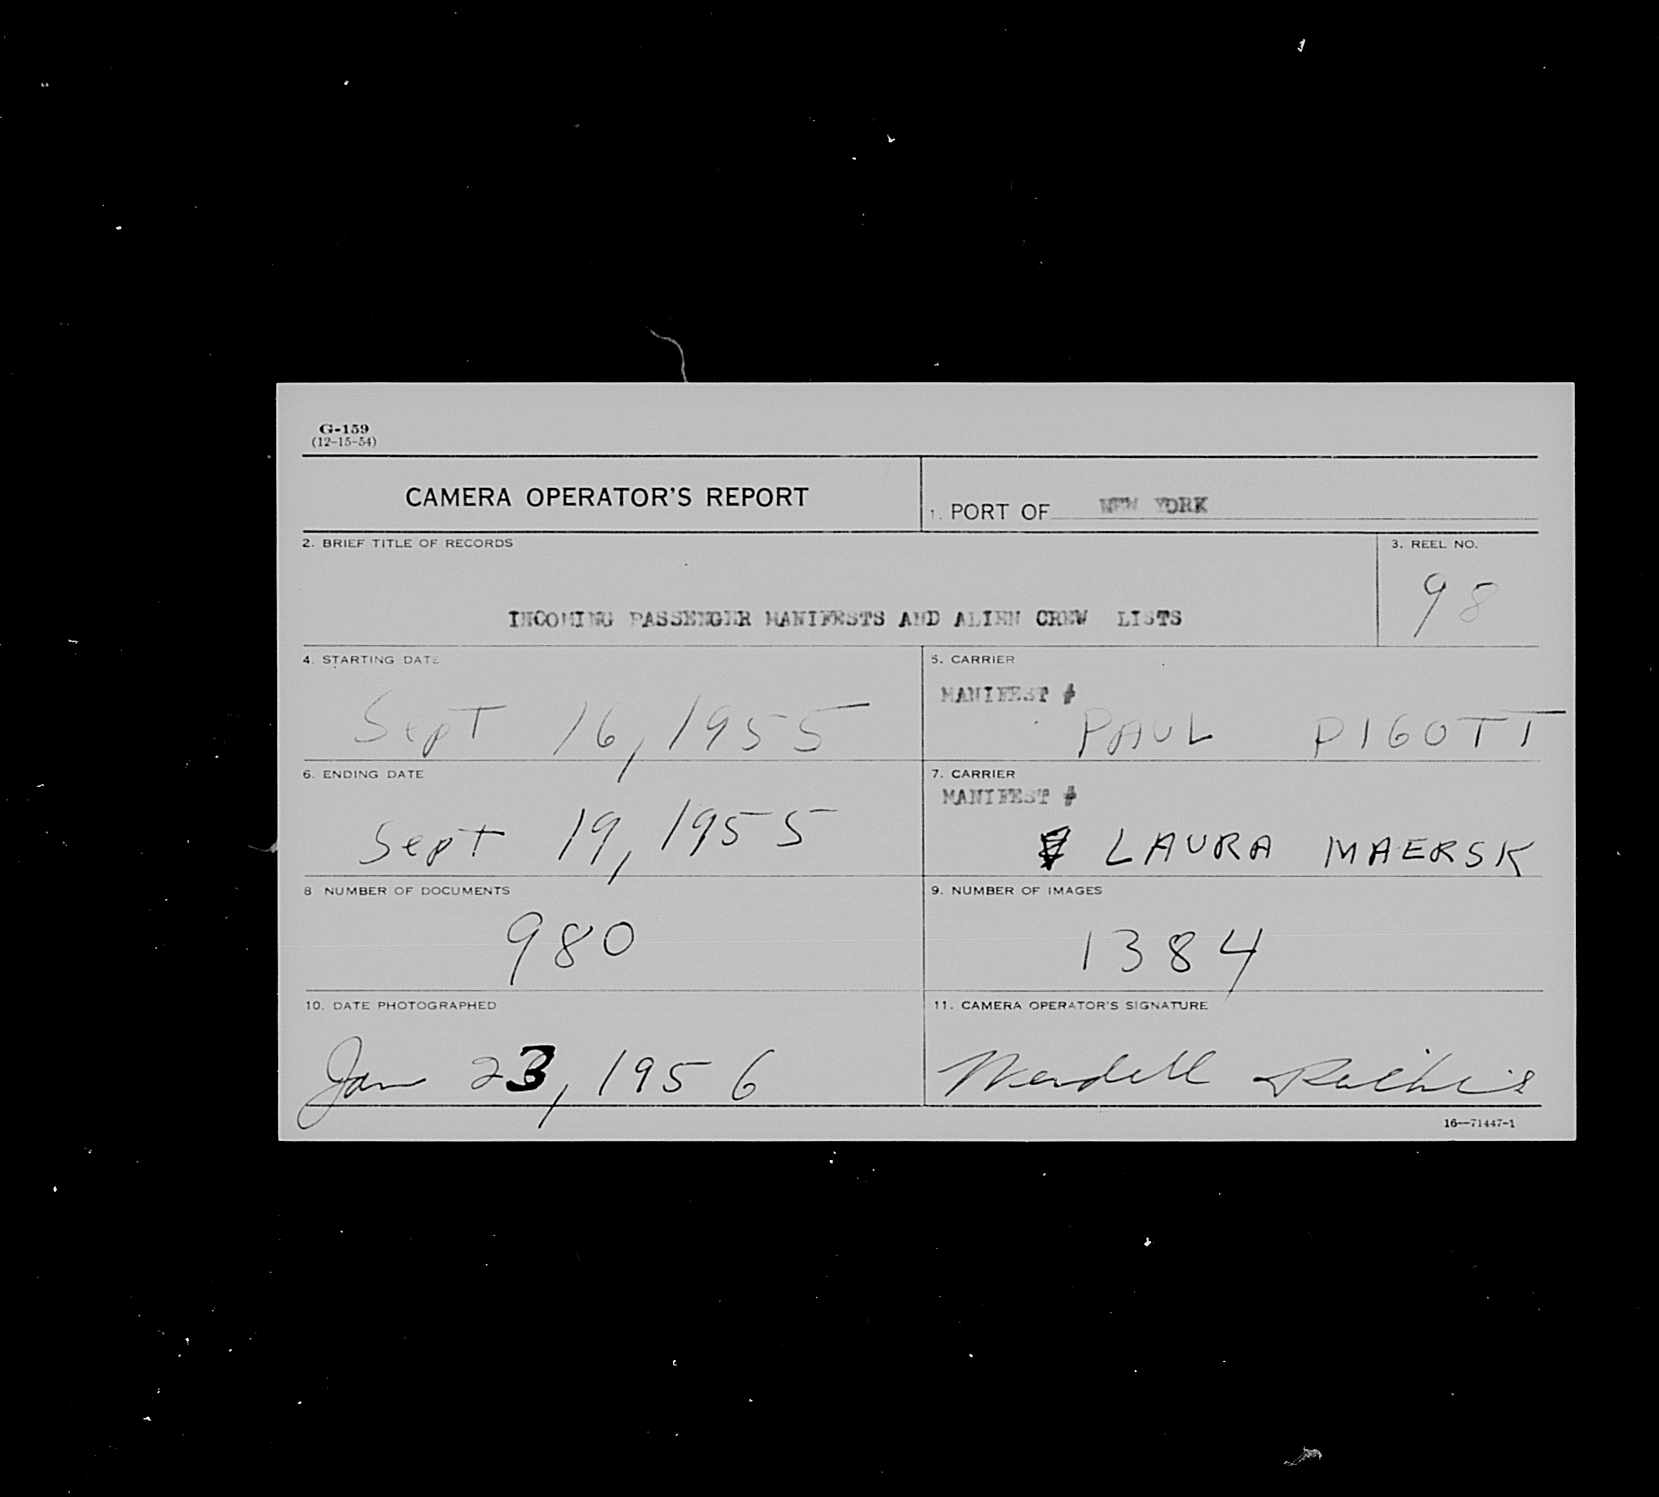 G-159
(12-15-54)
CAMERA OPERATOR'S REPORT
1. PORT OF NEW YORK
2. BRIEF TITLE OF RECORDS
INCOMING PASSENGER MANIFESTS AND ALIEN CREW LISTS
3. REEL NO.
98
4. STARTING DATE
Sept 16, 1955
5. CARRIER
MANIFEST #
PAUL PIGOTT
6. ENDING DATE
Sept 19, 1955
7. CARRIER
MANIFEST #
LAURA MAERSK
8 NUMBER OF DOCUMENTS
980
9. NUMBER OF IMAGES
1384
10. DATE PHOTOGRAPHED
Jan 23, 1956
11. CAMERA OPERATOR'S SIGNATURE
Wendell
16—71447-1